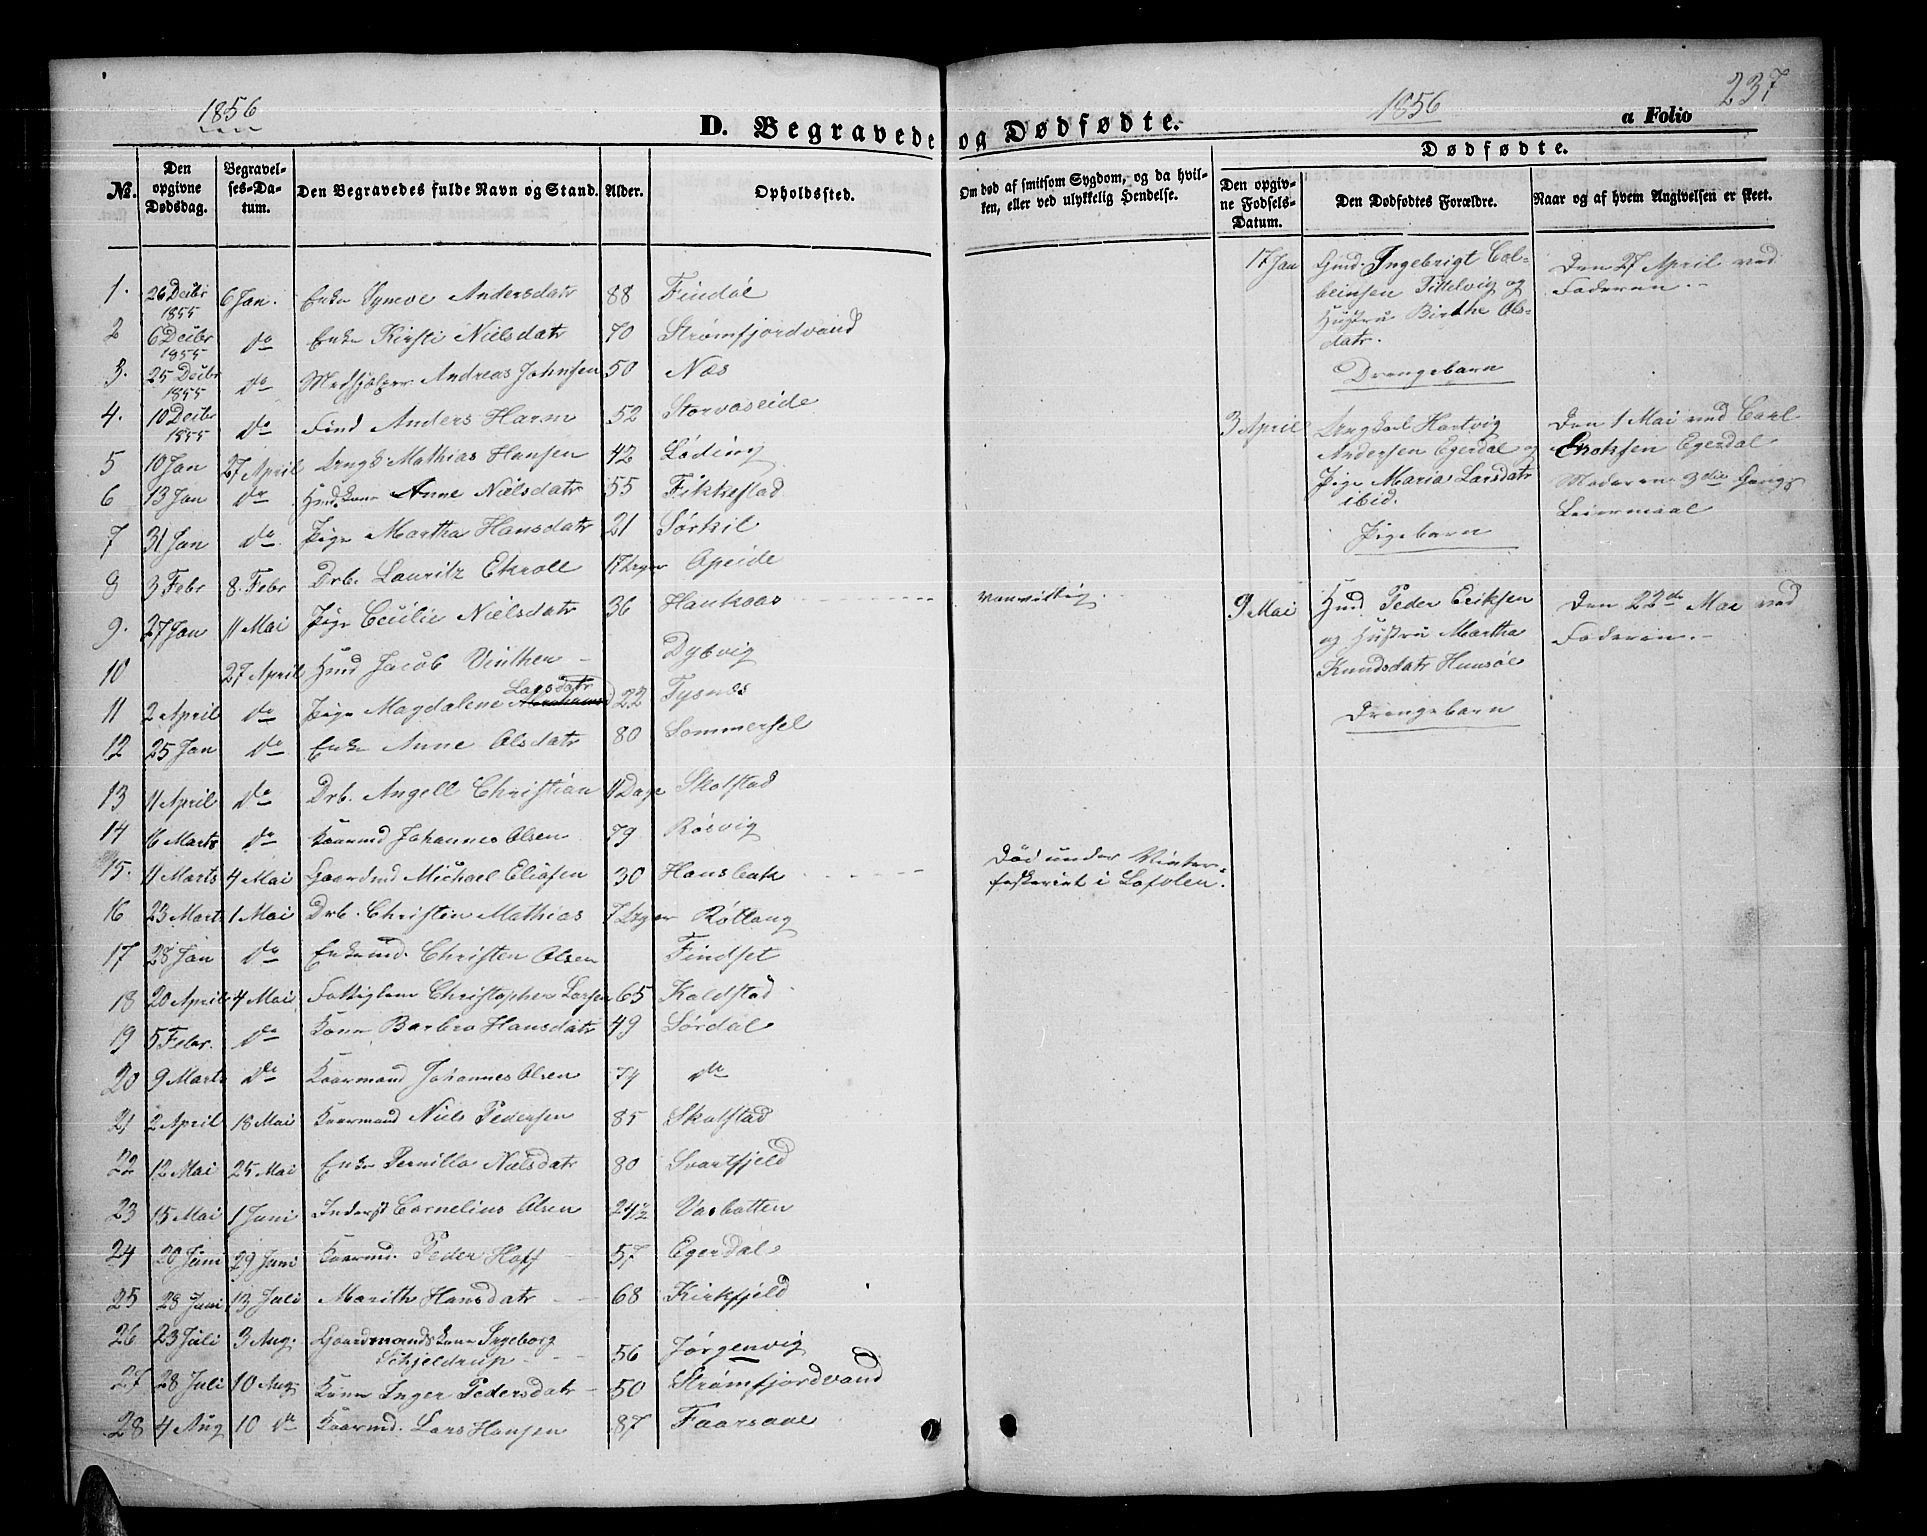 1856
D. Begravede og Dødfødte.
1856
a Folio
237
Dødfødte.
No. Den opgivne Dødsdag. Begravelses-Datum. Den Begravedes fulde Navn og Stand. Alder. Opholdssted. Om død af smitsom Sygdom, og da hvilken, eller ved ulykkelig Hendelse. Den opgivne Fødsels-Datum. Den Dødfødtes Forældre. Naar og af hvem Angivelsen er skeet.
1. 26 Decbr 1855 6 Jan. Enke Synneve Andersdatr 88 Findøl
2 6 Decbr 1855 do Enke Kirsti Nielsdatr 70 Strømfjordvand
3. 25 Decbr 1855 do Andreas Johnsen 50 Næs
4. 10 Decbr 1855 do Find Anders Harm 52 Storvaseide
5 10 Jan 27 April Mathias Hansen 42 Løding
6 13 Jan do Anne Nielsdatr 55 Fikkestad
7 31 Jan do Pige Martha Hansdatr 21 Sørkil
8 3 Febr 8. Febr Drb. Lauritz Ekroll 17 Uger Apeide
9. 27 Jan 11 Mai Pige Cecilie Nielsdatr 36 Haukaas vanvittig
10 27 April Hmd Jacob Vinther Dybvig
11 2 April do Pige Magdalene Larsdatr 22 Tysnes
12 25 Jan do Enke Anne Olsdatr 80 Sommersel
13 11 April do Drb. Angell Christian 11 Dage Skotstad
14 16 Marts do Kaarmd Johannes Olsen 79 Røsvig
15. 11 Marts 4 Mai Gaardmd Michael Eliasen 30 Hansbak Död under Vinterfiskeriet i Lofoten.
16 23 Marts 1 Mai Drb. Christen Mathias 7 Uger Røttang
17 28 Jan do Enkemd. Christen Olsen Findset
18 20 April 4 Mai Fattiglem Christopher Larsen 65 Kaldstad
19 5 Febr. do Kone Barbro Hansdatr 49 Sørdal
20 9 Marts do Kaarmand Johannes Olsen 74 do
21 2 April 18 Mai Kaarmand Niels Pedersen 85 Skotstad
22 12 Mai 25 Mai Enke Pernilla Nielsdatr 80 Svartfjeld
23 15 Mai 1 Juni Inderst Cornelius Olsen 24½ Vasbotten
24 20 Juni 29 Juni Kaarmd. Peder Hoff 57 Egerdal
25 28 Juni 13 Juli Marith Hansdatr 68 Kirkfjeld
26 23 Juli 3 Aug. Gaardmandskone Ingeborg Schjeldrup 56 Jørgenvig
27 28 Juli 10 Aug Kone Inger Pedersdatr 50 Strømfjordvand
28 4 Aug 10 do Kaarmd. Lars Hansen 87 Faarsane
17 Jan Ingebrigt Colbeinsen Tittelvig og Hustru Birthe Olsdatr. Drengebarn
Den 27 April ved Faderen.
3 April Ungkarl Hartvig Andersen Egerdal og Pige Maria Larsdatr ibid. Pigebarn
Den 1 Mai ved Carl Enoksen Egerdal Moderens 3die Gangs Leiermaal
9 Mai Hmd Peder Eriksen og Hustru Martha Knudsdatr Hunsøl Drengebarn
Den 22de Mai ved Faderen.